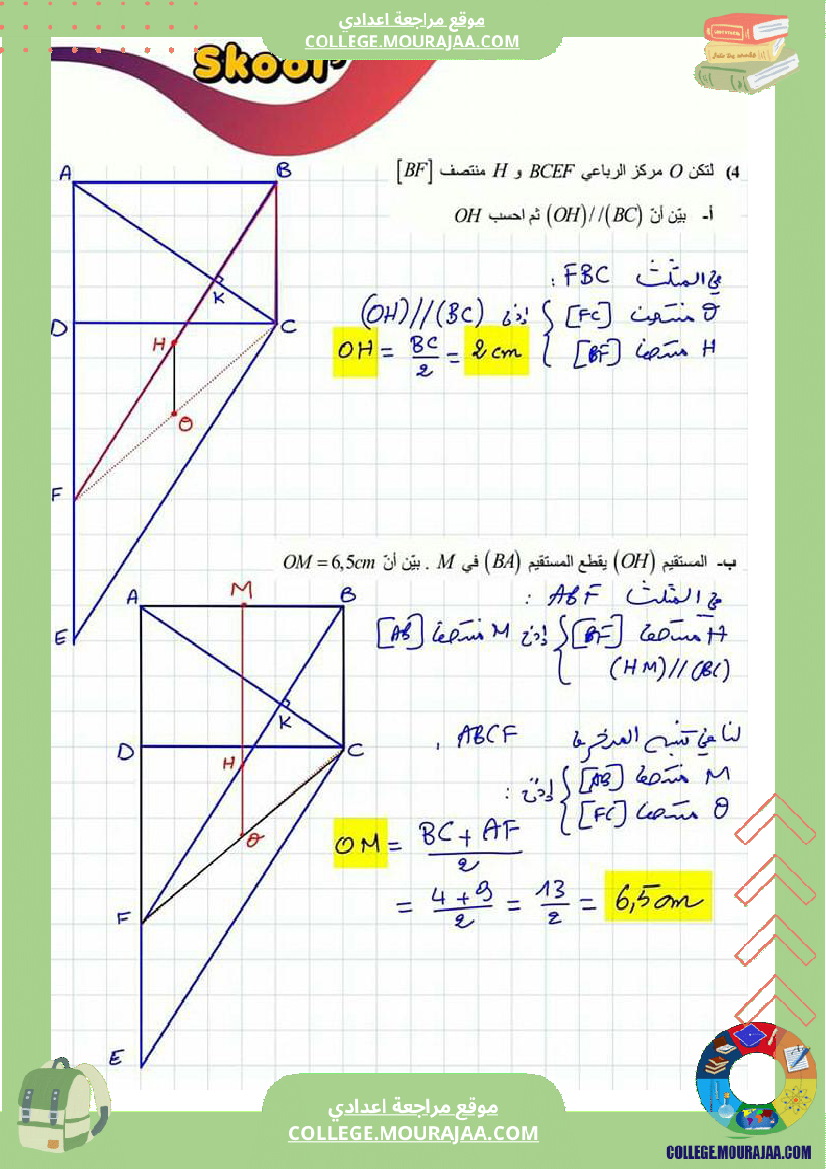 موقع مراجعة اعدادي
COLLEGE.MOURAJAA.COM
Skool
4) لتكن O مركز الرباعي BCEF و H منتصف [BF]
أ- بيّن أنّ (OH)//(BC) ثم احسب OH
A B
في المثلث FBC :
K
O منتصف [FC] إذن (OH)//(BC)
D C
H منتصف [BF]
OH = BC/2 = 2cm
H
O
F
ب- المستقيم (OH) يقطع المستقيم (BA) في M . بيّن أنّ OM = 6,5cm
E
A M B
في المثلث ABF :
H منتصف [BF] إذن M منتصف [AB]
(HM)//(BC)
K
D H C
لنا في شبه المنحرف ABCF ,
M منتصف [AB] إذن :
O منتصف [FC]
O
OM = BC + AF / 2
= 4 + 9 / 2 = 13 / 2 = 6,5cm
F
E
موقع مراجعة اعدادي
COLLEGE.MOURAJAA.COM
COLLEGE.MOURAJAA.COM